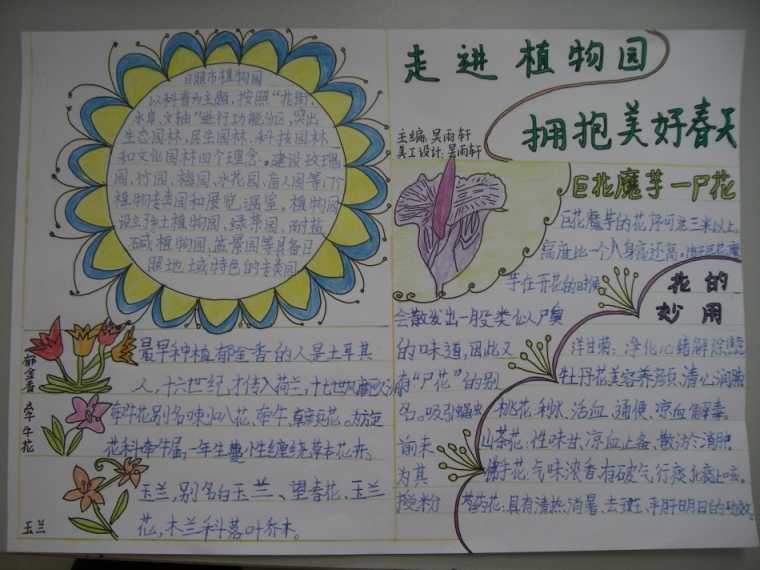 走进植物园
拥抱美好春天
主编:吴雨轩
美工设计:吴雨轩
日照市植物园
以科普为主题,按照“花街、
水阜、文轴”进行功能分区,突出
生态园林、民生园林、科技园林
和文化园林四个理念。建设玫瑰
园、竹园、梅园、水花园、盲人园等
植物专类园和展览温室。植物园
设立乡土植物园、绿茶园、耐盐
碱植物园、盆景园等具备日
照地域特色的专类园
巨花魔芋—尸花
巨花魔芋的花序可达三米以上,
高度比一个人身高还高。
芋在开花的时候
会散发出一股类似尸臭
的味道,因此又
有“尸花”的别
名。吸引蝇虫
前来
为其
授粉
花的
妙用
洋甘菊:净化心绪解除
牡丹花:美容养颜,清心润肺
桃花:利水、活血、通便、凉血解毒。
山茶花:性味甘、凉血止备、散淤消肿
佛手花:气味浓香,有破气行痰、止咳。
具有清热消暑、去
郁金香
最早种植郁金香的人是土耳其
人,十六世纪,才传入荷兰,十七世纪
牵牛花
牵牛花别名喇叭花、牵牛、
花科牵牛属,一年生蔓性缠绕草本花卉。
玉兰
玉兰,别名白玉兰、望春花、玉兰
花,木兰科落叶乔木。